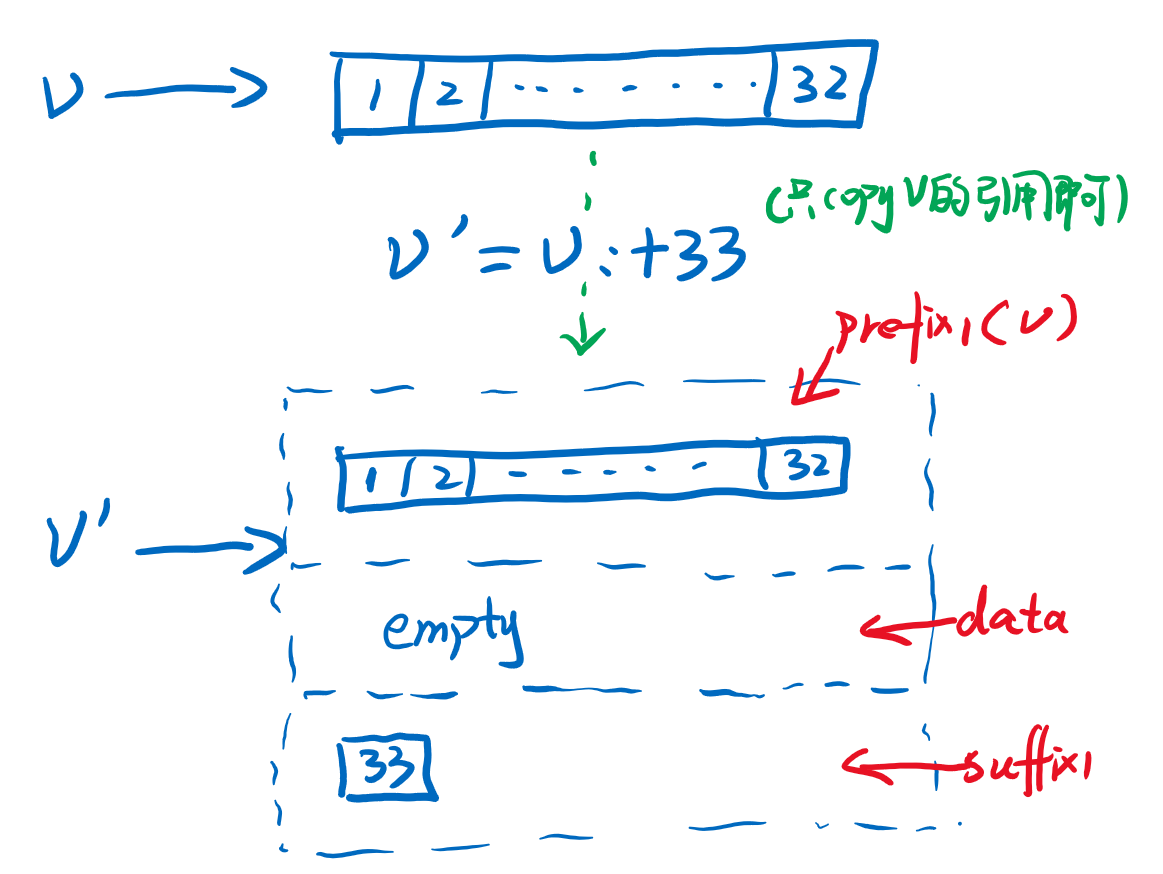 v 1 2 ...... 32
(只copy v的引用即可)
v' = v :+33
prefix1(v)
1 2 ..... 32
v'
empty data
33 suffix1